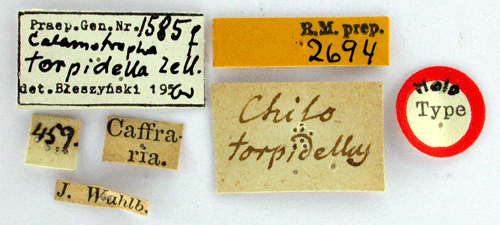 Praep.Gen.Nr. 1585 ♀
Calamotropha
torpidella Zell.
det. Błeszyński 19
R.M. prep.
2694
Holo
Type
459.
Caffra-
ria.
Chilo
torpidellus
J. Wahlb.